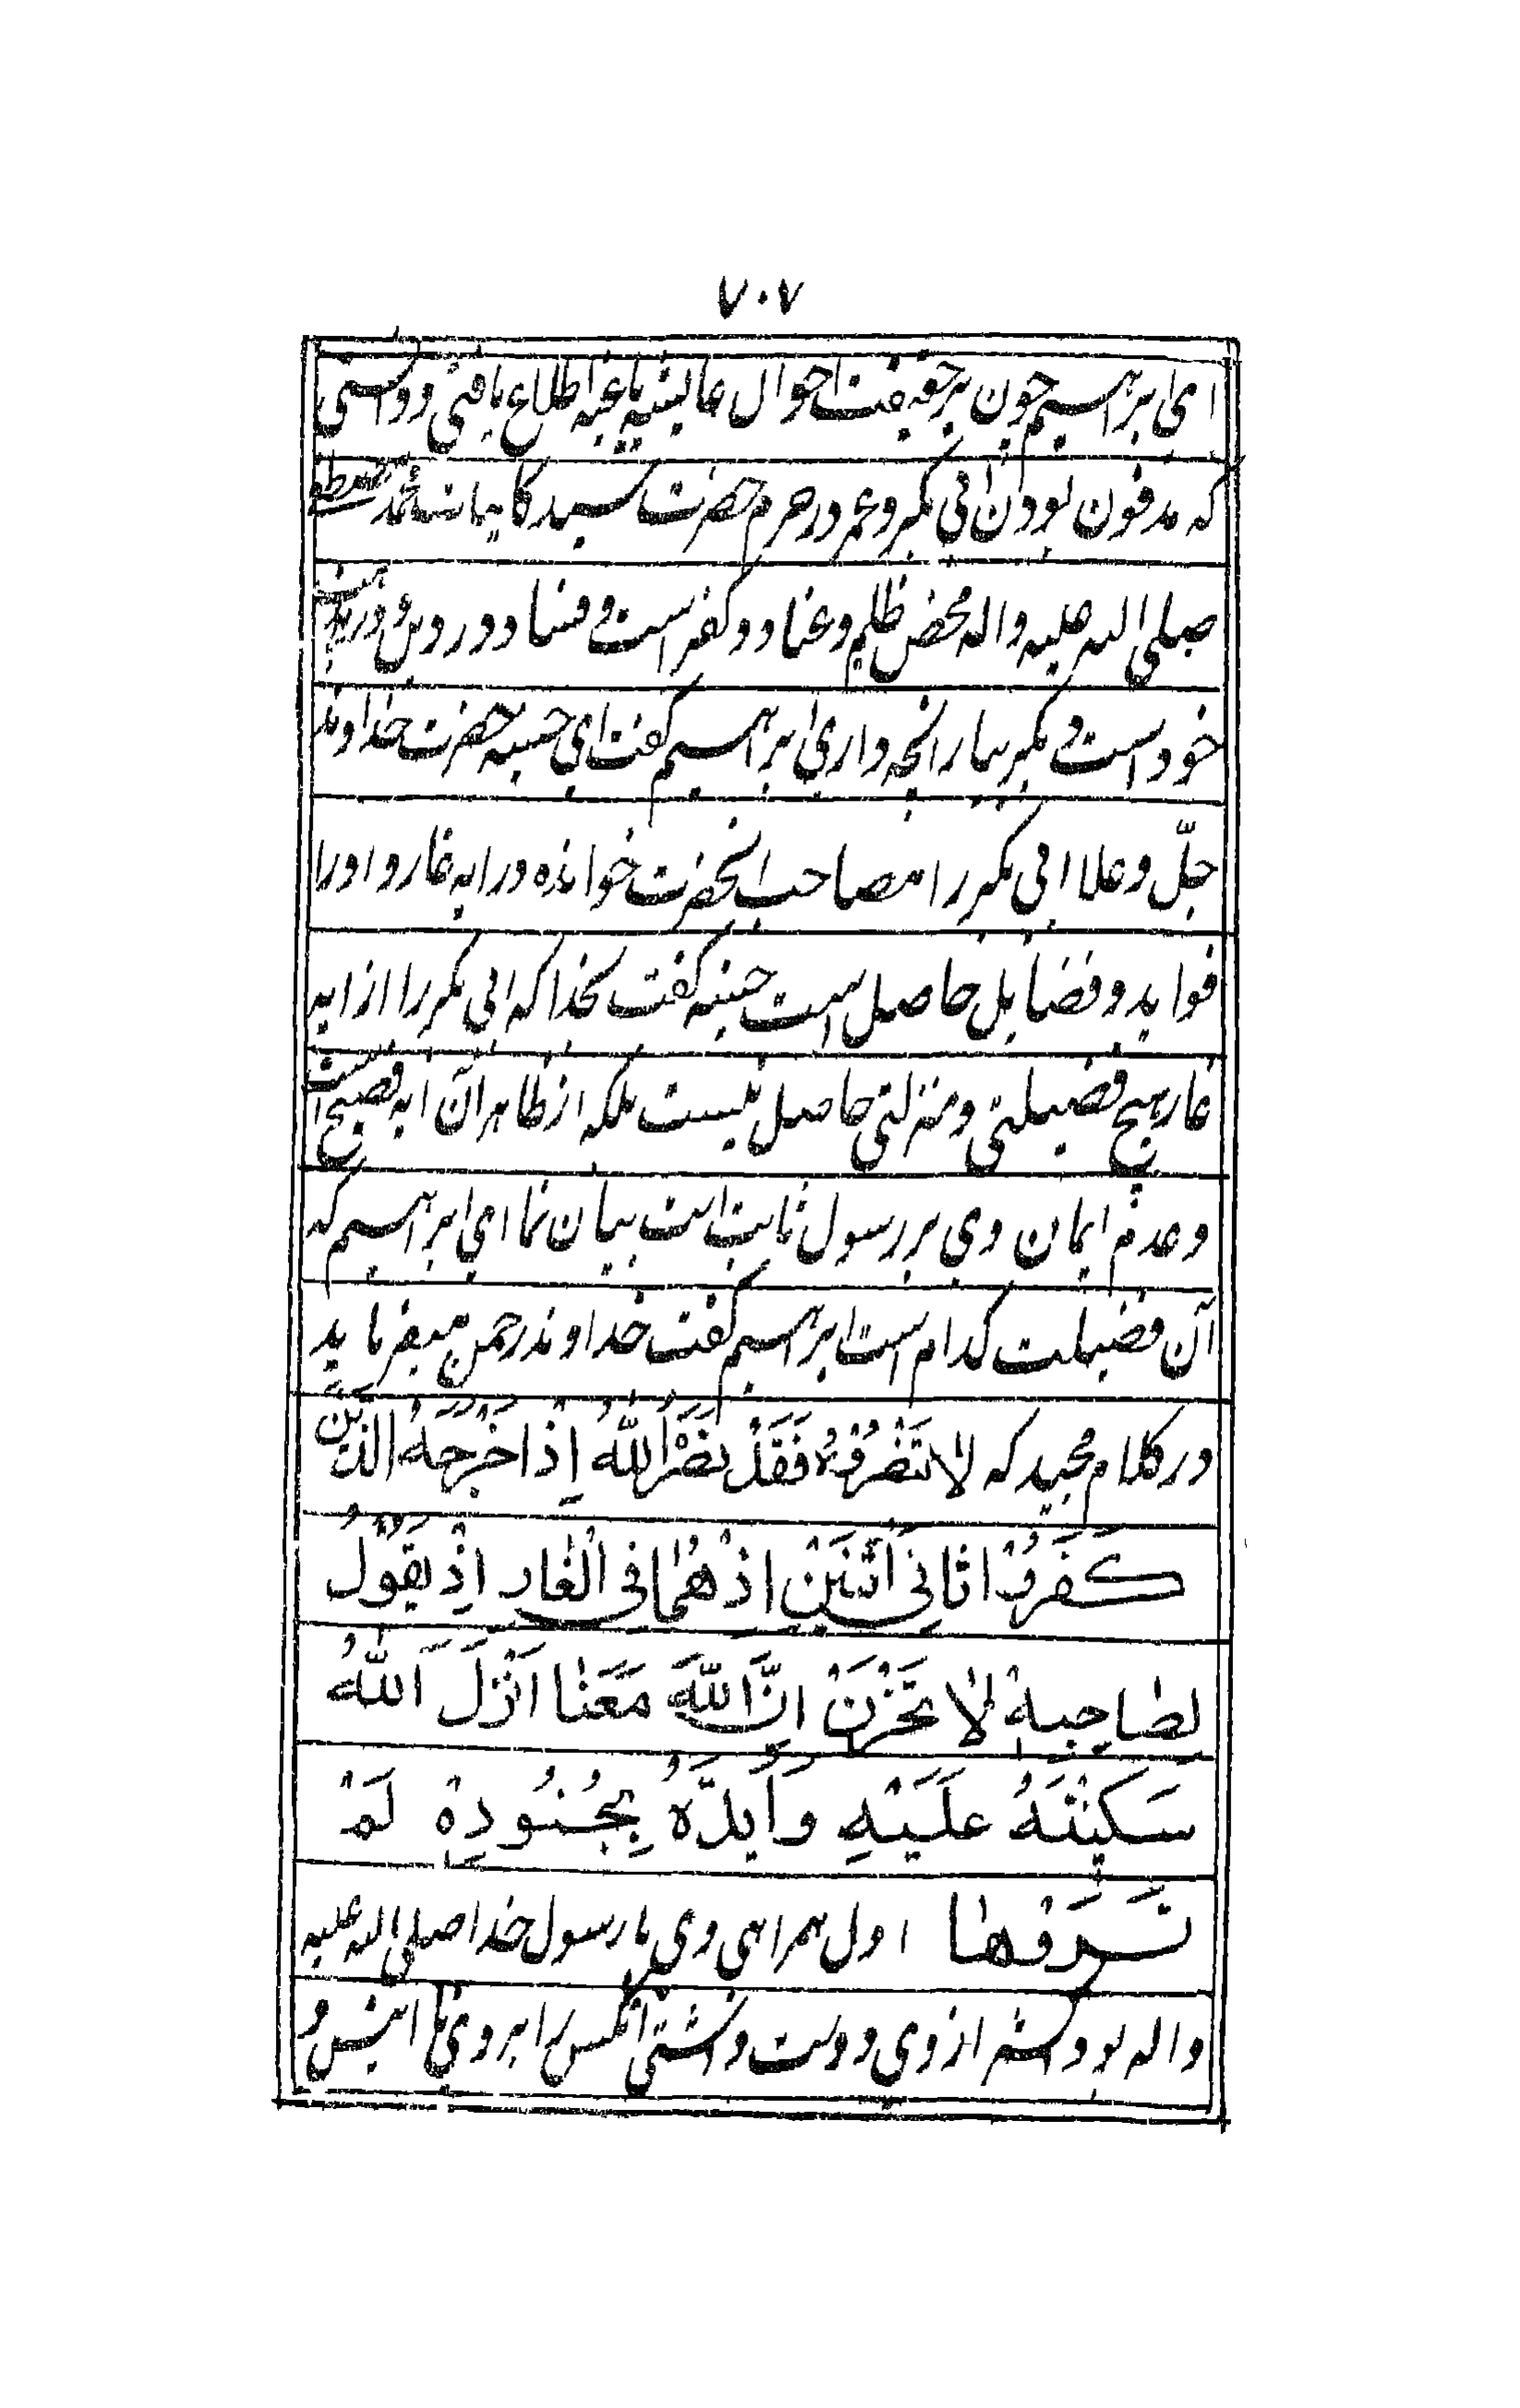 ۷۰۷
ای ابراهیم چون بر حقیقت احوال عایشه باغیه اطلاع یافتی و دانستی
که مدفون بودن ابی بکر و عمر در حرم حضرت سید کاینات محمد مصطفی
صلی الله علیه واله محض ظلم و عناد و کفر است و فساد و در
خود است و دیگر بیار انچه داری ابراهیم گفت ای حسنیه حضرت خداوند
جلّ وعلا ابی بکر را مصاحب انحضرت خوانده در ایه غار و او را
فواید و فضایل حاصل است حسنیه گفت بخدا که ابی بکر را از ایه
غار هیچ فضیلتی و منزلتی حاصل نیست بلکه از ظاهر آن ایه
وعدم ایمان وی بر رسول ثابت است بیان نما ای ابراهیم که
آن فضیلت کدام است ابراهیم گفت خداوند رحمن میفرماید
در کلام مجید که لا تَنْصُرُوْهُ فَقَدْ نَصَرَهُ اللّٰهُ اِذْ اَخْرَجَهُ الَّذِيْنَ
كَفَرُوْا ثَانِيَ اثْنَيْنِ اِذْ هُمَا فِي الْغَارِ اِذْ يَقُوْلُ
لِصَاحِبِهِ لَا تَحْزَنْ اِنَّ اللّٰهَ مَعَنَا اَنْزَلَ اَللّٰهُ
سَكِيْنَتَهُ عَلَيْهِ وَاَيَّدَهُ بِجُنُوْدِهِ لَمْ
تَرَوْهَا اول همراهی وی با رسول خدا صلی الله علیه
واله بود و از وی دوست داشتی انکس را بر وی با انیس و